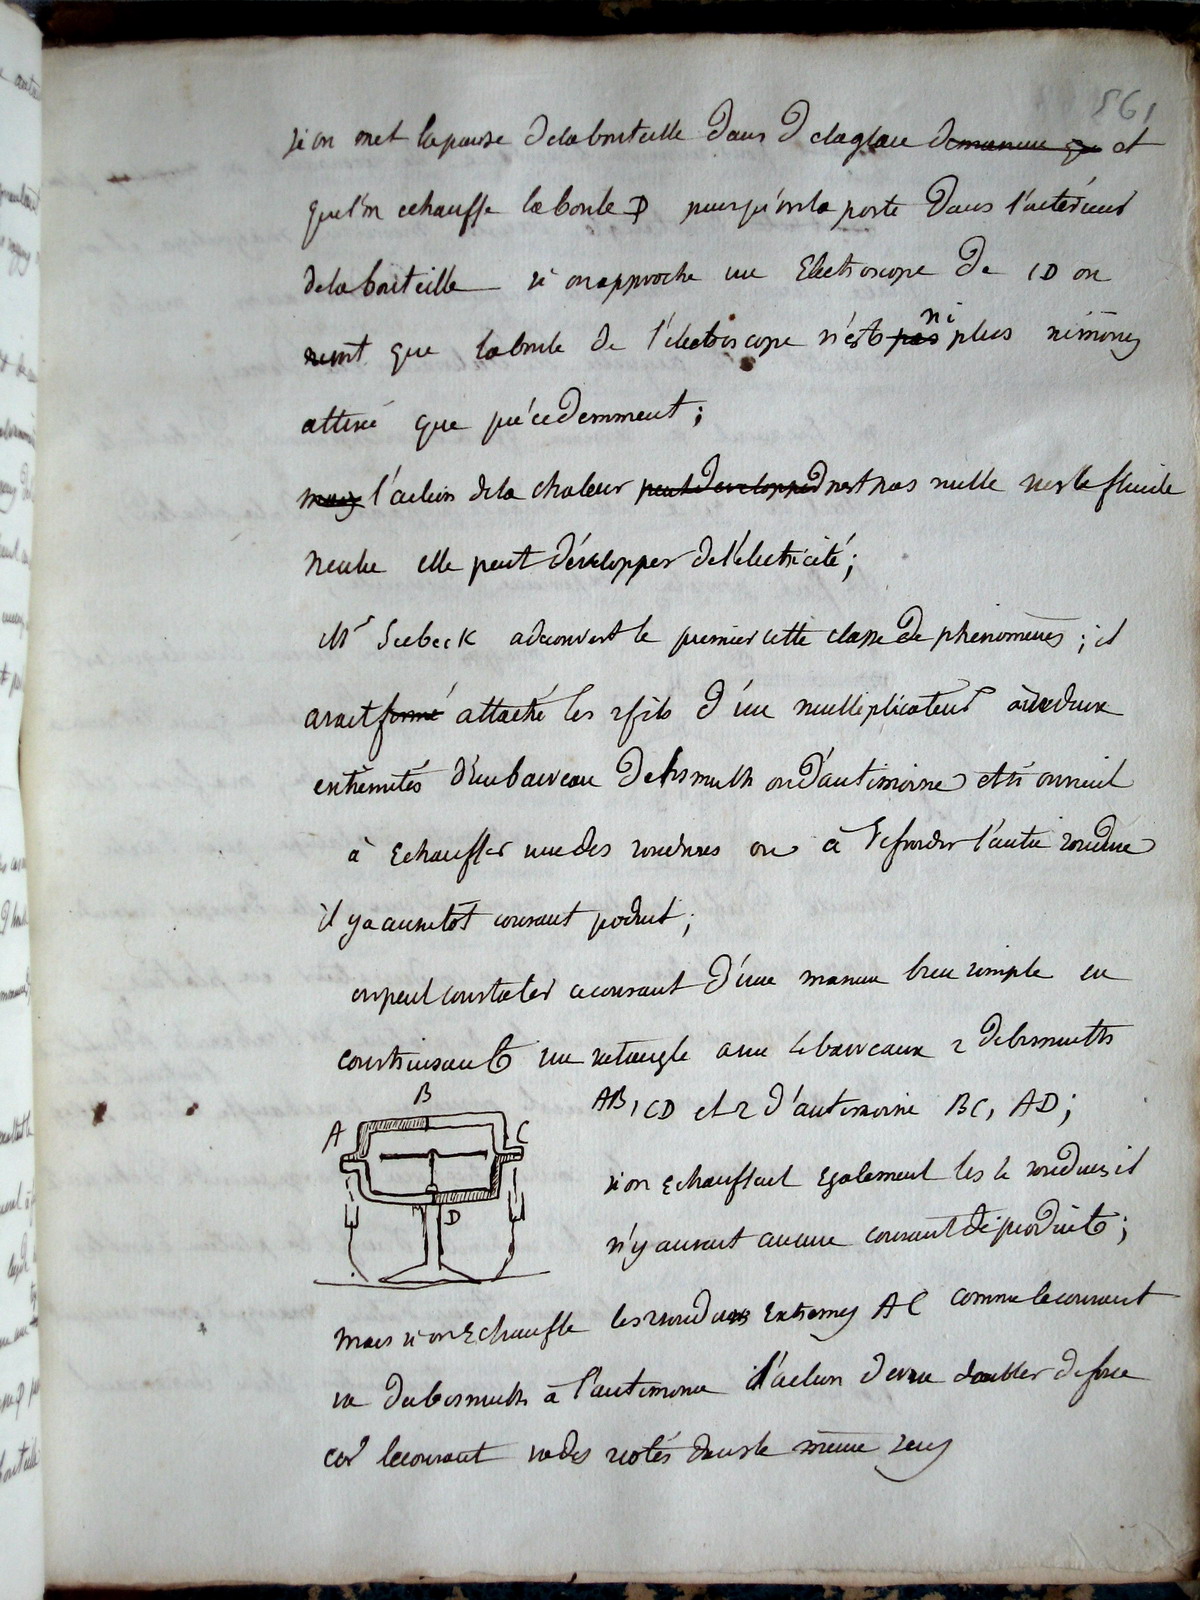 561
si on met la panse de la bouteille dans de la glace de maniere que et
que l'on echauffe la boule D puisqu'on la porte dans l'intérieur
de la bouteille si on approche un Electroscope de CD on
que la boule de l'électroscope n'est pas ni plus ni moins
attiré que précédemment;
mais l'action de la chaleur peut développer n'est pas nulle sur le fluide
neutre elle peut développer de l'électricité;
Mr Seebeck a découvert le premier cette classe de phénomènes; il
avait formé attaché les 2 fils d'un multiplicateur à deux
extrémités d'un barreau de bismuth ou d'antimoine et si on vient
à Echauffer une des soudures ou à refroidir l'autre soudure
il y a aussitôt courant produit;
on peut constater ce courant d'une maniere bien simple en
construisant un rectangle avec 4 barreaux 2 de bismuth
AB, CD et 2 d'antimoine BC, AD;
si on Echauffait Egalement les 4 soudures il
n'y aurait aucun courant de produit;
B
A
C
D
mais si on Echauffe les 2 soudures Extremes A C comme le courant
va du bismuth à l'antimoine l'action devra doubler de force
car le courant va des 2 cotés dans le même sens